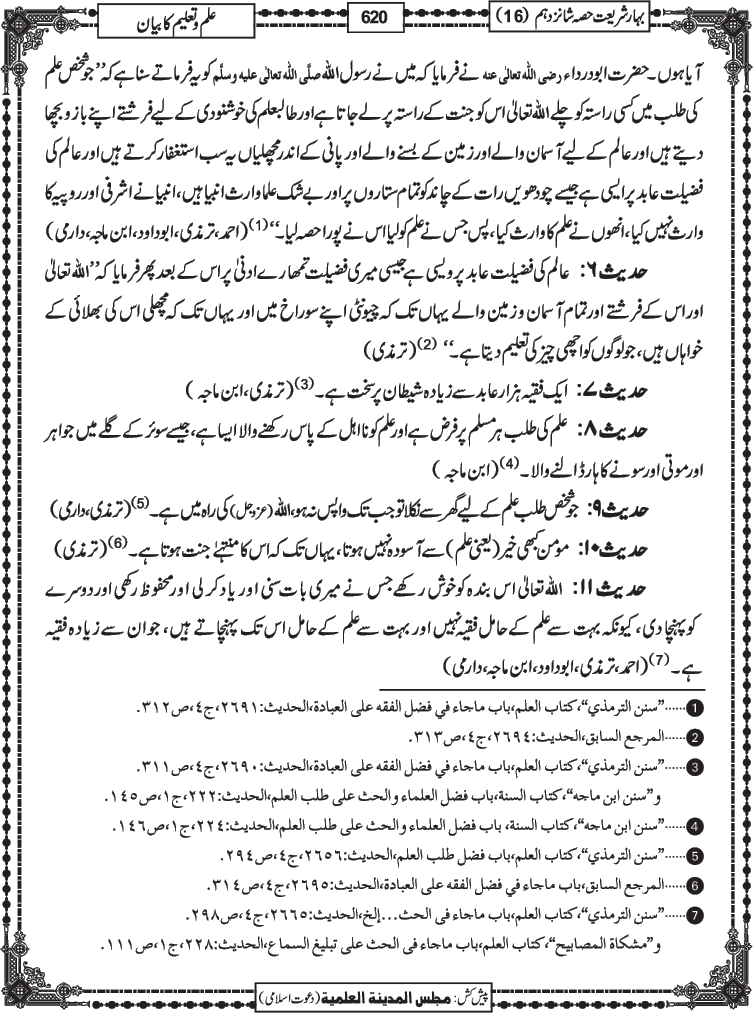 بہار شریعت حصہ شانزدہم (16)
620
علم و تعلیم کا بیان
آیا ہوں۔ حضرت ابودرداء رضی اللہ تعالیٰ عنہ نے فرمایا کہ میں نے رسول اللہ صلَّی اللہ تعالیٰ علیہ وسلَّم کو یہ فرماتے سنا ہے کہ ’’جو شخص علم
کی طلب میں کسی راستہ کو چلے اللہ تعالیٰ اس کو جنت کے راستہ پر لے جاتا ہے اور طالبعلم کی خوشنودی کے لیے فرشتے اپنے بازو بچھا
دیتے ہیں اور عالم کے لیے آسمان والے اور زمین کے بسنے والے اور پانی کے اندر مچھلیاں یہ سب استغفار کرتے ہیں اور عالم کی
فضیلت عابد پر ایسی ہے جیسے چودھویں رات کے چاند کو تمام ستاروں پر اور بے شک علما وارث انبیا ہیں، انبیا نے اشرفی اور روپیہ کا
وارث نہیں کیا، انھوں نے علم کا وارث کیا، پس جس نے علم کو لیا اس نے پورا حصہ لیا۔‘‘(1) (احمد، ترمذی، ابوداود، ابن ماجہ، دارمی)
حدیث ۶: عالم کی فضیلت عابد پر ویسی ہے جیسی میری فضیلت تمھارے ادنیٰ پر اس کے بعد پھر فرمایا کہ ’’اللہ تعالیٰ
اور اس کے فرشتے اور تمام آسمان و زمین والے یہاں تک کہ چیونٹی اپنے سوراخ میں اور یہاں تک کہ مچھلی اس کی بھلائی کے
خواہاں ہیں، جو لوگوں کو اچھی چیز کی تعلیم دیتا ہے۔‘‘ (2) (ترمذی)
حدیث ۷: ایک فقیہ ہزار عابد سے زیادہ شیطان پر سخت ہے۔ (3) (ترمذی، ابن ماجہ )
حدیث ۸: علم کی طلب ہر مسلم پر فرض ہے اور علم کو نااہل کے پاس رکھنے والا ایسا ہے، جیسے سوئر کے گلے میں جواہر
اور موتی اور سونے کا ہار ڈالنے والا۔ (4) (ابن ماجہ )
حدیث ۹: جو شخص طلب علم کے لیے گھر سے نکلا تو جب تک واپس نہ ہو، اللہ (عزوجل) کی راہ میں ہے۔ (5) (ترمذی، دارمی)
حدیث ۱۰: مومن کبھی خیر (یعنی علم) سے آسودہ نہیں ہوتا، یہاں تک کہ اس کا منتہےٰ جنت ہوتا ہے۔ (6) (ترمذی)
حدیث ۱۱: اللہ تعالیٰ اس بندہ کو خوش رکھے جس نے میری بات سنی اور یاد کر لی اور محفوظ رکھی اور دوسرے
کو پہنچا دی، کیونکہ بہت سے علم کے حامل فقیہ نہیں اور بہت سے علم کے حامل اس تک پہنچاتے ہیں، جو ان سے زیادہ فقیہ
ہے۔ (7) (احمد، ترمذی، ابوداود، ابن ماجہ، دارمی)
1 ......”سنن الترمذي“، کتاب العلم، باب ماجاء في فضل الفقه على العبادة، الحدیث: ۲۶۹۱، ج۴، ص۳۱۲.
2 ......المرجع السابق، الحدیث: ۲۶۹۴، ج۴، ص۳۱۳.
3 ......”سنن الترمذي“، کتاب العلم، باب ماجاء في فضل الفقه على العبادة، الحدیث: ۲۶۹۰، ج۴، ص۳۱۱.
و”سنن ابن ماجه“، کتاب السنة، باب فضل العلماء والحث على طلب العلم، الحدیث: ۲۲۲، ج۱، ص۱۴۵.
4 ......”سنن ابن ماجه“، کتاب السنة، باب فضل العلماء والحث على طلب العلم، الحدیث: ۲۲۴، ج۱، ص۱۴۶.
5 ......”سنن الترمذي“، کتاب العلم، باب فضل طلب العلم، الحدیث: ۲۶۵۶، ج۴، ص۲۹۴.
6 ......المرجع السابق، باب ماجاء في فضل الفقه على العبادة، الحدیث: ۲۶۹۵، ج۴، ص۳۱۴.
7 ......”سنن الترمذي“، کتاب العلم، باب ماجاء فى الحث...إلخ، الحدیث: ۲۶۶۵، ج۴، ص۲۹۸.
و”مشكاة المصابيح“، کتاب العلم، باب ماجاء فى الحث على تبليغ السماع، الحدیث: ۲۲۸، ج۱، ص۱۱۱.
پیش کش: مجلس المدینة العلمیة (دعوت اسلامی)